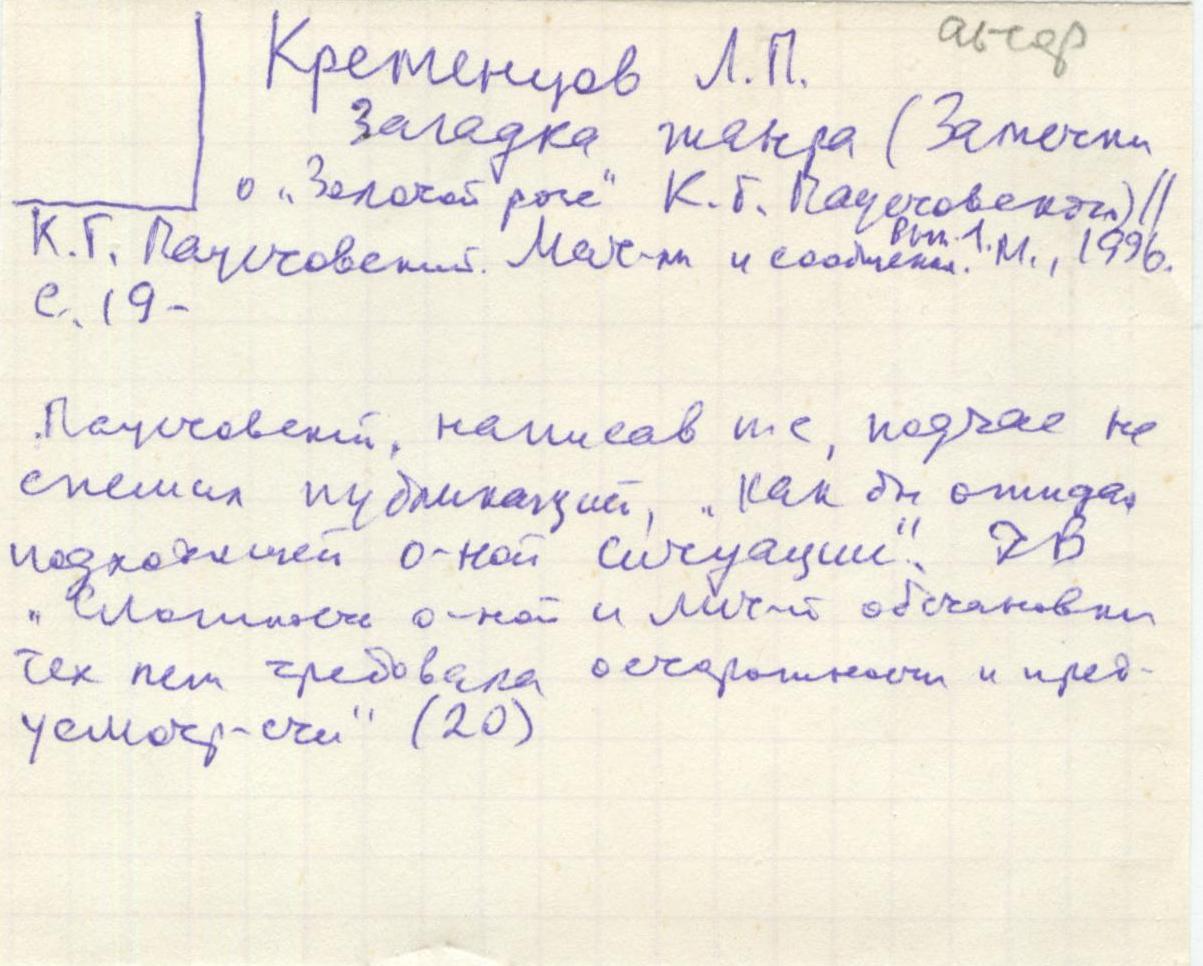 автор
Кременцов Л.П.
Загадка жанра (Заметки
о „Золотой розе" К.Г. Паустовского) //
К.Г. Паустовский. Мат-лы и сообщения. Вып. 1. М., 1996.
С. 19-
Паустовский, написав что-с, подчас не
спешил публикацией, „как бы ожидая
подходящей о-ной ситуации".
„Сложность о-ной и лит-й обстановки
тех лет требовала осторожности и пред-
усмотр-сти" (20)